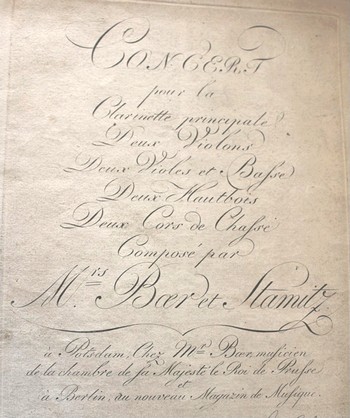 CONCERT
pour la
Clarinette principale
Deux Violons
Deux Violes et Basse
Deux Hautbois
Deux Cors de Chasse
Composé par
M.rs Bœr et Stamitz
à Potsdam, Chez Mr Bœr, musicien
de la chambre de sa Majesté le Roi de Prusse
et
à Berlin, au nouveau Magazin de Musique.